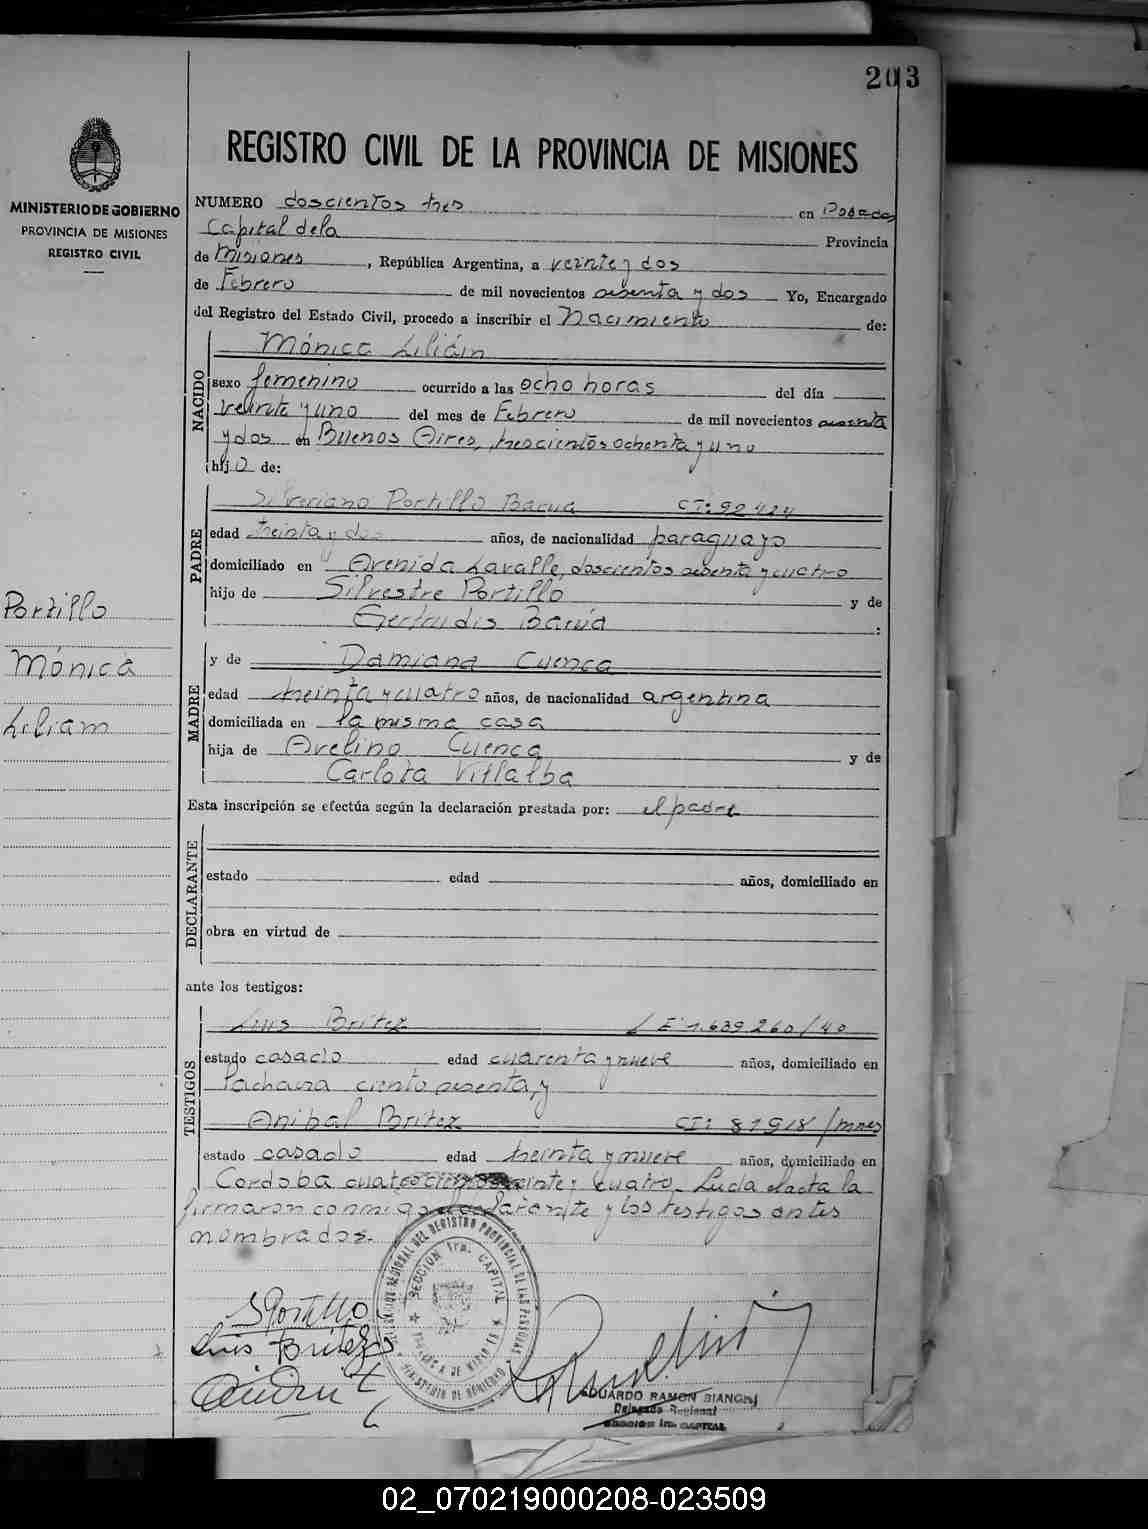 203
REGISTRO CIVIL DE LA PROVINCIA DE MISIONES
MINISTERIO DE GOBIERNO
PROVINCIA DE MISIONES
REGISTRO CIVIL
NUMERO doscientos tres en Posadas
Capital de la Provincia
de Misiones, República Argentina, a veinte y dos
de Febrero de mil novecientos sesenta y dos Yo, Encargado
del Registro del Estado Civil, procedo a inscribir el Nacimiento de:
NACIDO
Mónica Lilián
sexo femenino ocurrido a las ocho horas del día
veinte y uno del mes de Febrero de mil novecientos sesenta
y dos en Buenos Aires, trescientos ochenta y uno
hijo de:
PADRE
Silveriano Portillo Barua CI: 92424
edad treinta y dos años, de nacionalidad paraguayo
domiciliado en Avenida Lavalle, doscientos sesenta y cuatro
hijo de Silvestre Portillo y de
Gertrudis Barúa :
Portillo
Mónica
Liliam
MADRE
y de Damiana Cuenca
edad treinta y cuatro años, de nacionalidad argentina
domiciliada en la misma casa
hija de Avelino Cuenca y de
Carlota Villalba
Esta inscripción se efectúa según la declaración prestada por: el padre
DECLARANTE
estado edad años, domiciliado en
obra en virtud de
ante los testigos:
TESTIGOS
Luis Britez L E 1.639.260/40
estado casado edad cuarenta y nueve años, domiciliado en
ciento sesenta, y
Anibal Britez CI: 81918/mnes
estado casado edad treinta y nueve años, domiciliado en
Cordoba veinte y cuatro. Leida el acta la
firmaron conmigo y los testigos antes
nombrados.
SPortillo
Luis Britez
DELEGACION REGIONAL DEL REGISTRO PROVINCIAL DE LAS PERSONAS
SECCION 1ra. CAPITAL
MINISTERIO DE GOBIERNO
EDUARDO RAMON BIANCHI
Delegado Regional
SECCION 1ra. CAPITAL
02_070219000208-023509